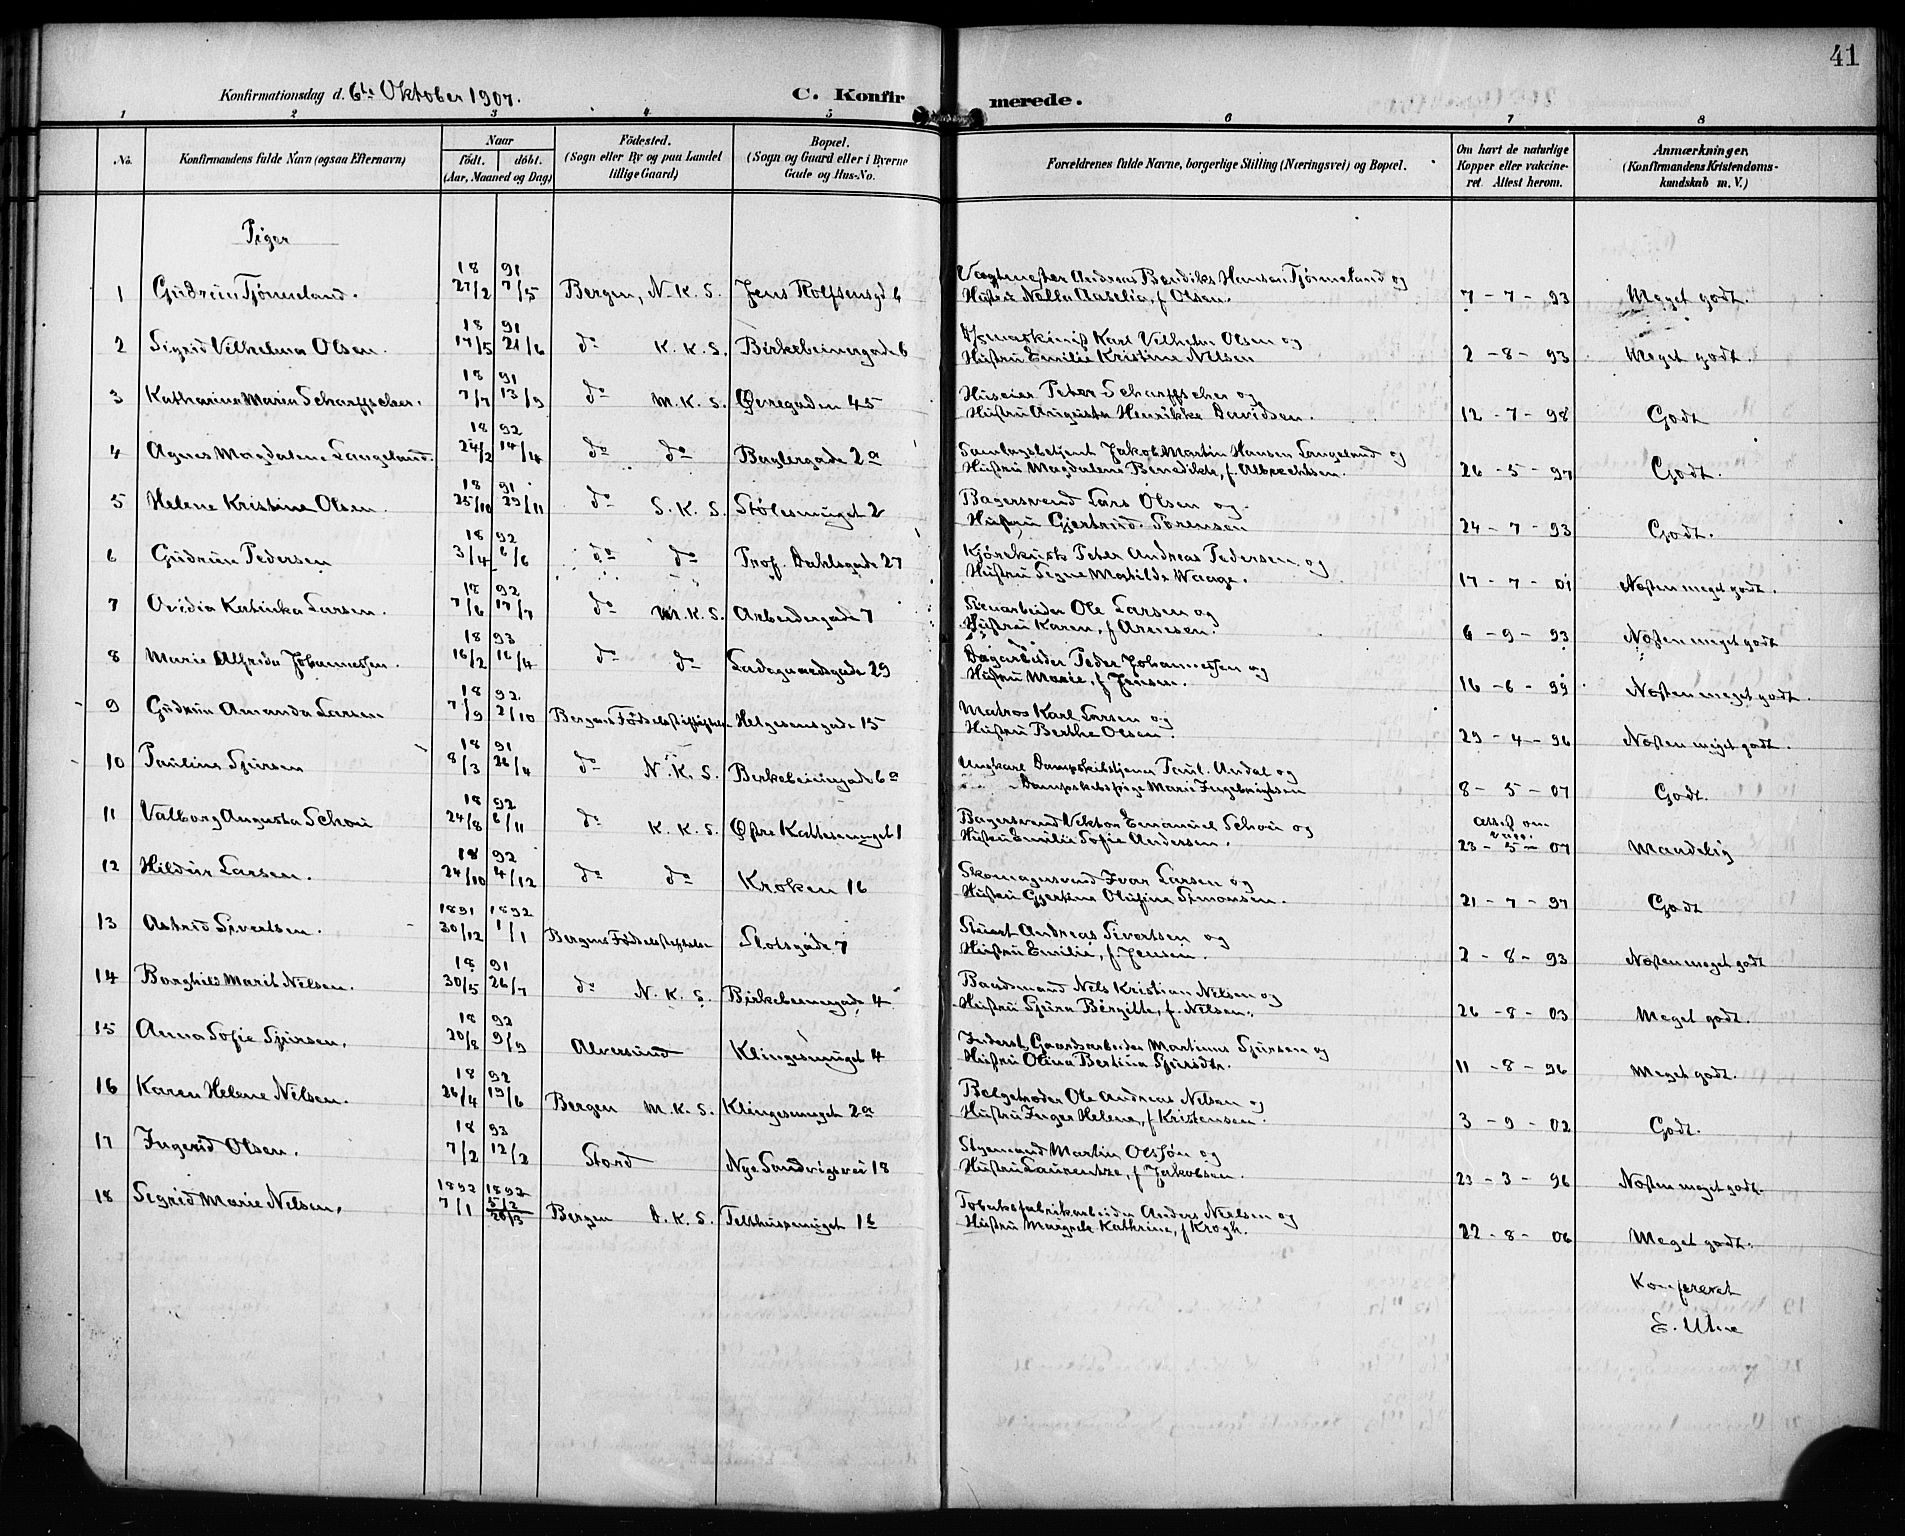 41
Konfirmationsdag d. 6te Oktober 1907.
C. Konfirmerede.
1 2 3 4 5 6 7 8
No.
Konfirmandens fulde Navn (ogsaa Efternavn)
Naar
födt. döbt.
(Aar, Maaned og Dag)
Födested.
(Sogn eller By og paa Landet
tillige Gaard)
Bopæl.
(Sogn og Gaard eller i Byerne
Gade og Hus-No.
Forældrenes fulde Navne, borgerlige Stilling (Næringsvei) og Bopæl.
Om havt de naturlige
Kopper eller vakcine-
ret. Attest herom.
Anmærkninger,
(Konfirmandens Kristendoms-
kundskab m. V.)
Piger
18 91
1 Gudrun Tjønneland. 27/2 7/5 Bergen, N. K. S. Jens Rolfsensgd 6
Vægtmester Andreas Bendiks Hansen Tjønneland og
Hustru Nella Aurelia, f Olsen. 7 - 7 - 93 Meget godt.
18 91
2 Sigrid Vilhelmina Olsen. 17/5 21/6 do K. K. S. Birkebeinergade 6
Karl Vilhelm Olsen og
Hustru Emilie Kristine Nilsen 2 - 8 - 93 Meget godt.
18 91
3 Katharine Marie Scharffscher. 7/7 13/9 do M. K. S. Øvregaden 45
Huseier Peter Scharffscher og
Hustru Augusta Henrikke Davidsen. 12 - 7 - 98 Godt
18 92
4 Agnes Magdalene Langeland. 24/2 14/4 do do Baglergade 2a
Samlagsbetjent Jakob Martin Hansen Langeland og
Hustru Magdalene Benedikte, f. Albrechtsen. 26 - 5 - 97 Godt.
18 91
5 Helene Kristine Olsen. 25/10 29/11 do S. K. S. Stølesmuget 2
Bagersvend Lars Olsen og
Hustru Gjertrud Sørensen 24 - 7 - 93 Godt.
18 92
6 Gudrun Pedersen 3/4 6/6 do do Prof. Dahlsgade 27
Kjørekusk Peter Andreas Pedersen og
Hustru Signe Matilde Waage. 17 - 7 - 01 Næsten meget godt.
18 92
7 Ovidia Katinka Larsen. 7/6 17/7 do M. K. S. Arbeidergade 7
Ole Larsen og
Hustru Karen, f Arnesen. 6 - 9 - 93 Næsten meget godt
18 93
8 Marie Alfrida Johannessen. 16/2 16/4 do do Ladegaardsgade 29
Dagarbeider Peder Johannessen og
Hustru Marie, f Jensen. 16 - 6 - 99 Næsten meget godt.
18 92
9 Gudrun Amanda Larsen 7/9 2/10 Bergens Fødselsstiftelse Helgesensgade 15
Matros Karl Larsen og
Hustru Berthe Olsen. 29 - 4 - 96 Næsten meget godt.
18 91
10 Pauline Sjursen 8/3 26/4 do N. K. S. Birkebeinergade 6a
Ungkarl Dampskibstjener Paul Andal og
Dampskibspige Marie Ingebrigtsen 8 - 5 - 07 Godt.
18 92
11 Valborg Augusta Schou 24/8 6/11 do K. K. S. Østre Kattesmuget 1
Bagersvend Viktor Emanuel Schou og
Hustru Emilie Sofie Andersen. Attest om
vacc.
23 - 5 - 07 Maadelig
18 92
12 Hildur Larsen. 24/10 4/12 do do Kroken 16
Skomagersvend Ivar Larsen og
Hustru Gjertine Olufine Simonsen. 21 - 7 - 97 Godt
1891 1892
13 Astrid Sivertsen. 30/12 1/1 Bergens Fødselsstiftelse Slotsgade 7
Andreas Sivertsen og
Hustru Emilie, f. Jensen. 2 - 8 - 93 Næsten meget godt
18 91
14 Borghild Marit Nilsen. 30/5 26/7 do N. K. S. Birkebeinergade 4
Baadsmand Nils Kristian Nilsen og
Hustru Sjura Bergitte, f. Nilsen. 26 - 8 - 03 Meget godt.
18 92
15 Anna Sofie Sjursen. 20/8 9/9 Alversund Klingesmuget 4
Inderst Gaardsarbeider Martinus Sjursen og
Hustru Olina Bertina Sjursdtr. 11 - 8 - 96 Meget godt.
18 92
16 Karen Helene Nilsen. 26/4 19/6 Bergen M. K. S. Klingesmuget 2a
Ole Andreas Nilsen og
Hustru Inger Helene, f Kristensen. 3 - 9 - 02 Godt.
18 93
17 Ingerid Olsen. 7/2 12/2 Stord Nye Sandvigsvei 18
Styrmand Martin Olsen og
Hustru Laurentze, f Jakobsen. 23 - 3 - 96 Næsten meget godt.
1892 1892
18 Sigrid Marie Nilsen. 7/1 5/2
20/3 Bergen D. K. S. Telthussmuget 1b
Tobaksfabrikarbeider Anders Nielsen og
Hustru Margrete Kathrine, f Krogh. 22 - 8 - 06 Meget godt.
Konfereret